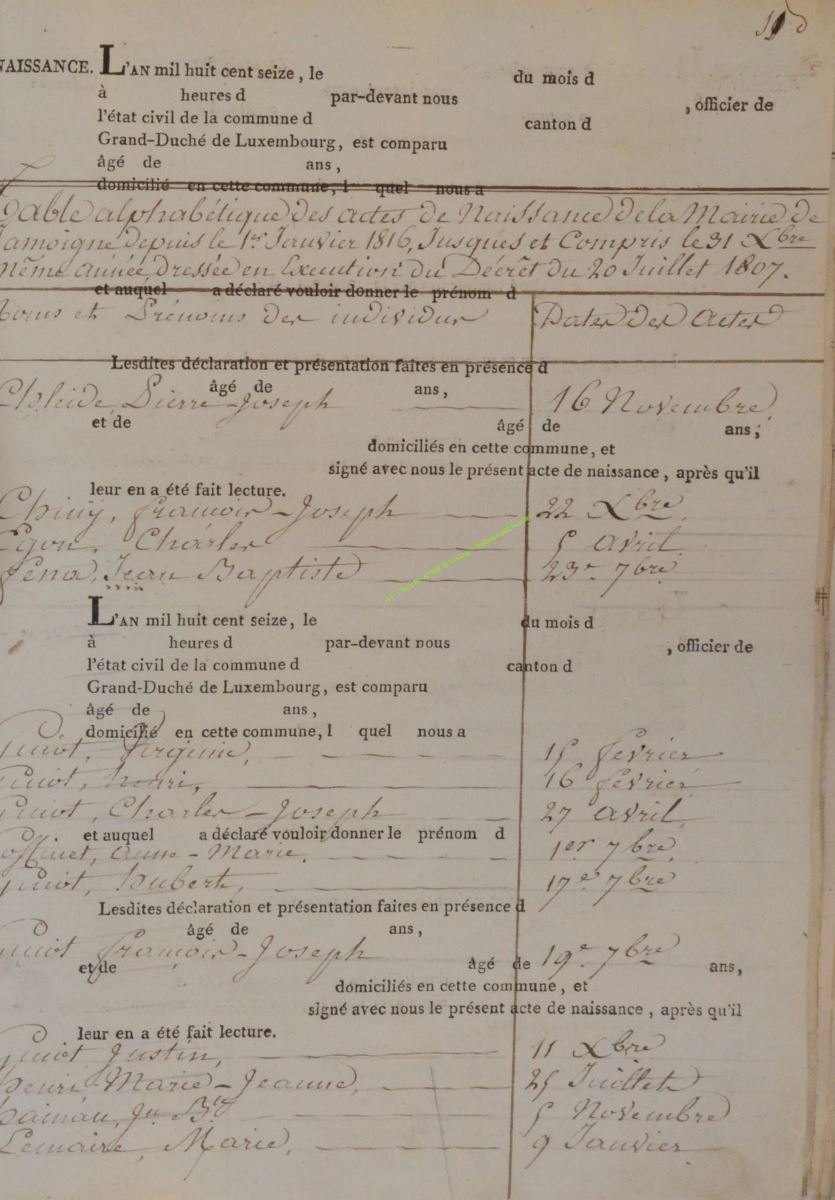 NAISSANCE. L'AN mil huit cent seize, le du mois d
à heures d par-devant nous , officier de
l'état civil de la commune d canton d
Grand-Duché de Luxembourg, est comparu
âgé de ans,
domicilié en cette commune, l quel nous a
Table alphabétique des actes de Naissance de la Mairie de
Jamoigne depuis le 1er Janvier 1816, Jusques et Compris le 31 Xbre
même année, dressée en Execution du Décrêt du 20 Juillet 1807.
et auquel a déclaré vouloir donner le prénom d
Noms et Prénoms des individus Dates des Actes
Lesdites déclaration et présentation faites en présence d
âgé de ans,
Pierre-Joseph 16 Novembre
et de âgé de ans;
domiciliés en cette commune, et
signé avec nous le présent acte de naissance, après qu'il
leur en a été fait lecture.
Chiny, françois-Joseph 22 Xbre
Egon, Charles 5 avril
fena, Jean Baptiste 23e 7bre
L'AN mil huit cent seize, le du mois d
à heures d par-devant nous , officier de
l'état civil de la commune d canton d
Grand-Duché de Luxembourg, est comparu
âgé de ans,
domicilié en cette commune, l quel nous a
Virginie, 15 février
henri, 16 février
Charles-Joseph 27 avril
et auquel a déclaré vouloir donner le prénom d
anne-Marie, 1er 7bre
hubert, 17e 7bre
Lesdites déclaration et présentation faites en présence d
âgé de ans,
françois-Joseph 19e 7bre
et de âgé de ans,
domiciliés en cette commune, et
signé avec nous le présent acte de naissance, après qu'il
leur en a été fait lecture.
Justin, 11 Xbre
henri, Marie-Jeanne, 25 Juillet
Jn Bte 5 Novembre
Lemaire, Marie, 9 Janvier